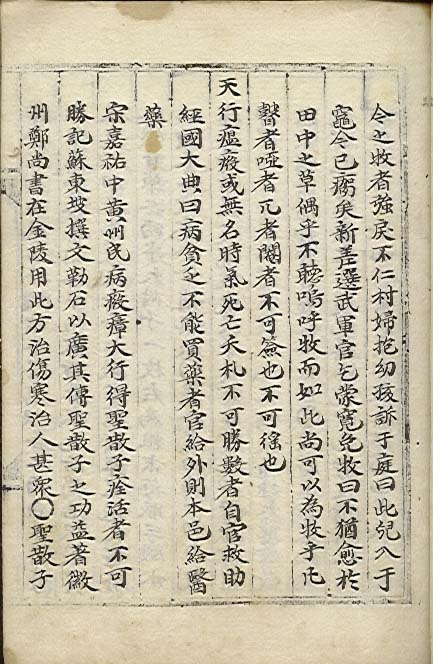 今之牧者強戾不仁村婦抱幼孩訴于庭曰此兒入于
竈今已瘍矣新差選武軍官乞蒙寬免牧曰不猶愈於
田中之草偶乎不聽嗚呼牧而如此尚可以為牧乎凡
瞽者啞者兀者閹者不可簽也不可徭也
天行瘟疫或無名時氣死亡夭札不可勝數者自官救助
經國大典曰病貧乏不能買藥者官給外則本邑給醫
藥
宋嘉祐中黄州民病疫瘴大行得聖散子痊活者不可
勝記蘇東坡撰文勒石以廣其傳聖散子之功益著徽
州鄭尚書在金陵用此方治傷寒治人甚眾○聖散子